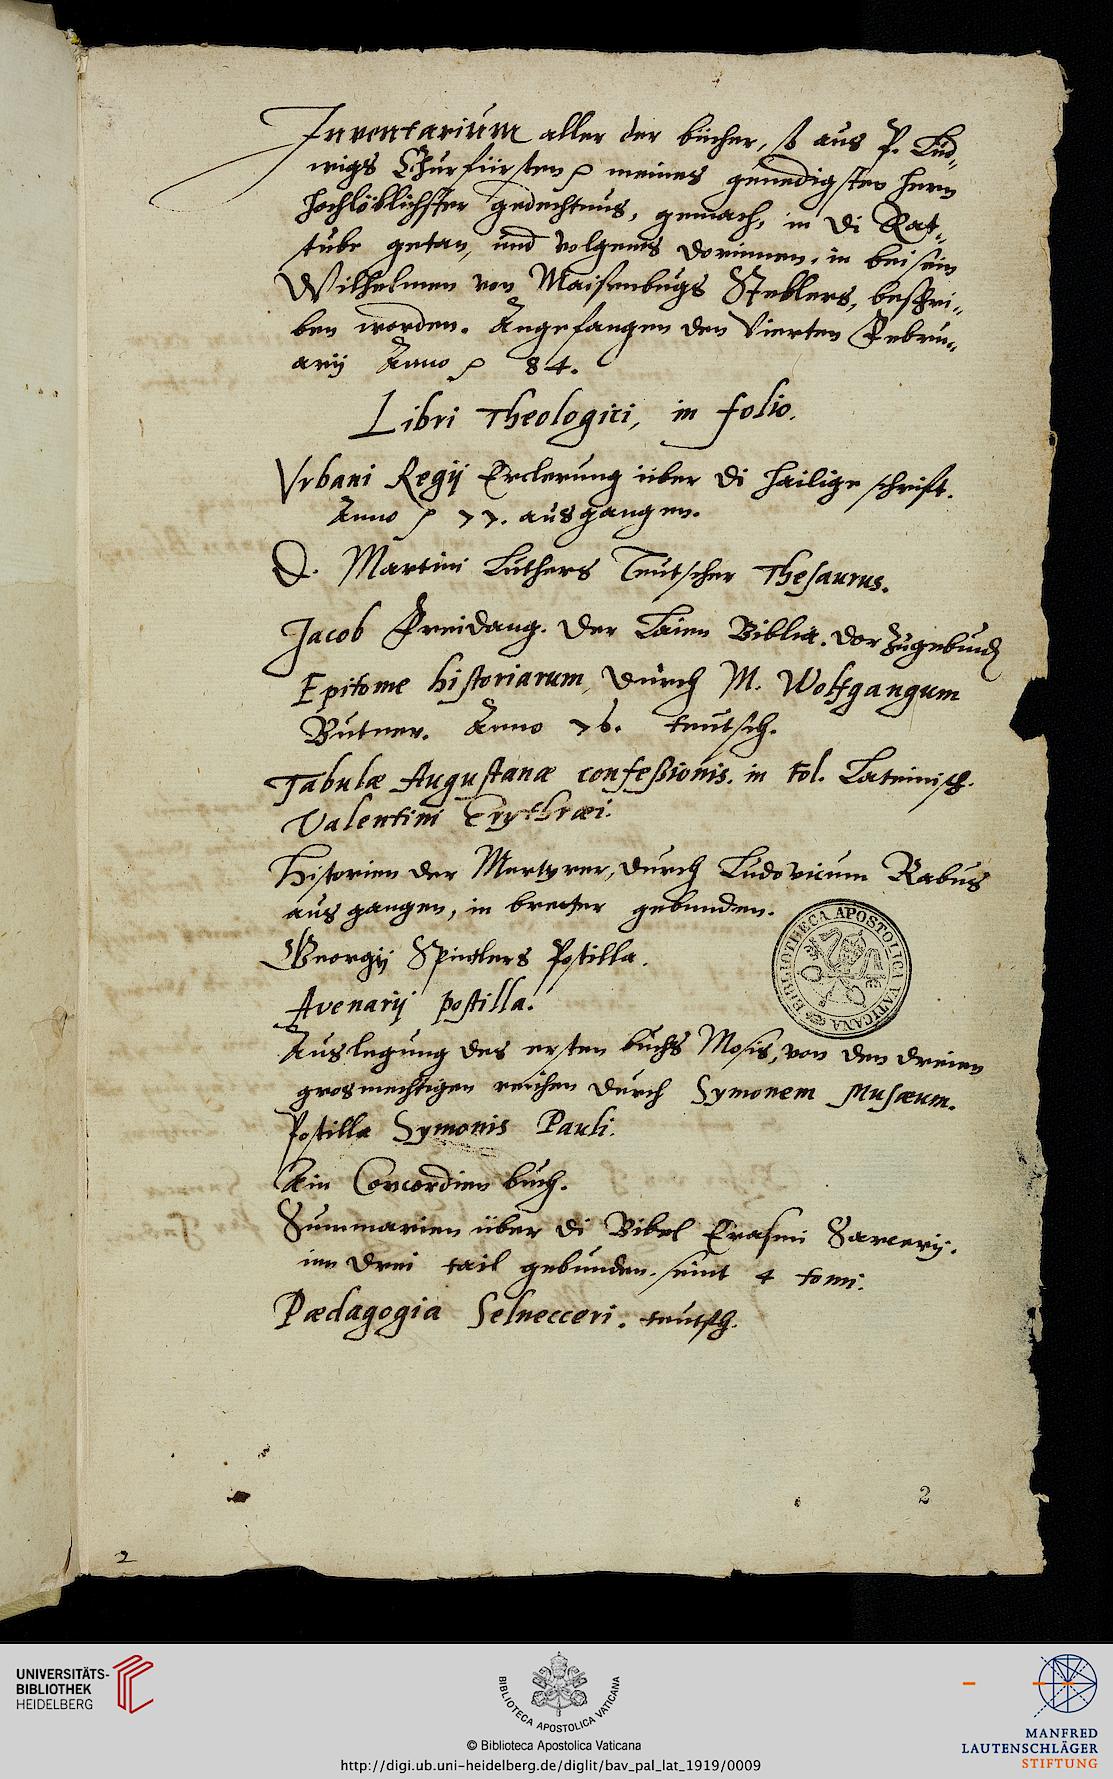 Inventarium aller der bücher, so aus P. Lud-
wigs Churfürsten p meines genedigsten hern
hochlöblichster gedechtnus, gemach, in di Rat-
stube getan, und volgents dorinnen, in beisein
Wilhelmen von Maisenbugs Steblers, beschri-
ben worden. Angefangen den Vierten Febru-
arij Anno p 84.
Libri Theologici, in folio.
Vrbani Regij Erclerung über di hailige schrift.
Anno p 77. ausgangen.
D. Martini Luthers Teutscher Thesaurus.
Jacob Freidang. Der Laien Biblia. dor Zugebund
Epitome historiarum, durch M. Wolfgangum
Butner. Anno 76. teutsch.
Tabulæ Augustanæ confeßionis. in fol. Lateinisch.
Valentini Erythræi.
Historien der Martyrer, durch Ludovicum Rabus
ausgangen, in breter gebunden.
Georgij Spindlers Postilla.
Avenarij postilla.
Auslegung des ersten buchs Mosis, von den dreien
grosmechtigen reichen durch Symonem Musæum.
Postilla Symonis Pauli.
Ain Concordien buch.
Summarien über di Bibel Erasmi Sarcerij.
inn drei tail gebunden. seint 4 tomi.
Pædagogia Selnecceri. teutsch.
BIBLIOTHECA APOSTOLICA VATICANA
2
2
UNIVERSITÄTS-
BIBLIOTHEK
HEIDELBERG
BIBLIOTECA APOSTOLICA VATICANA
© Biblioteca Apostolica Vaticana
http://digi.ub.uni-heidelberg.de/diglit/bav_pal_lat_1919/0009
MANFRED
LAUTENSCHLÄGER
STIFTUNG